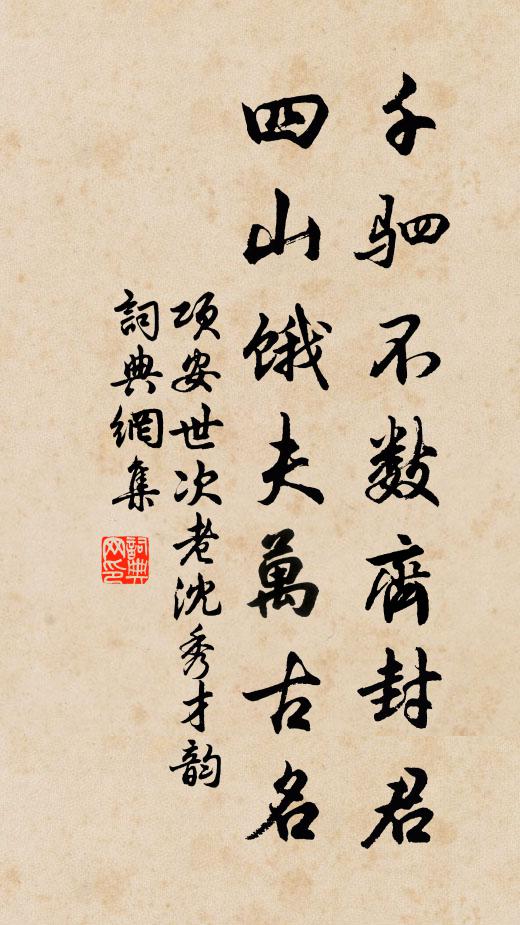 千驷不数齊封君
四山饿夫萬古名
项安世次老沈秀才韵
詞典網集
詞典网印